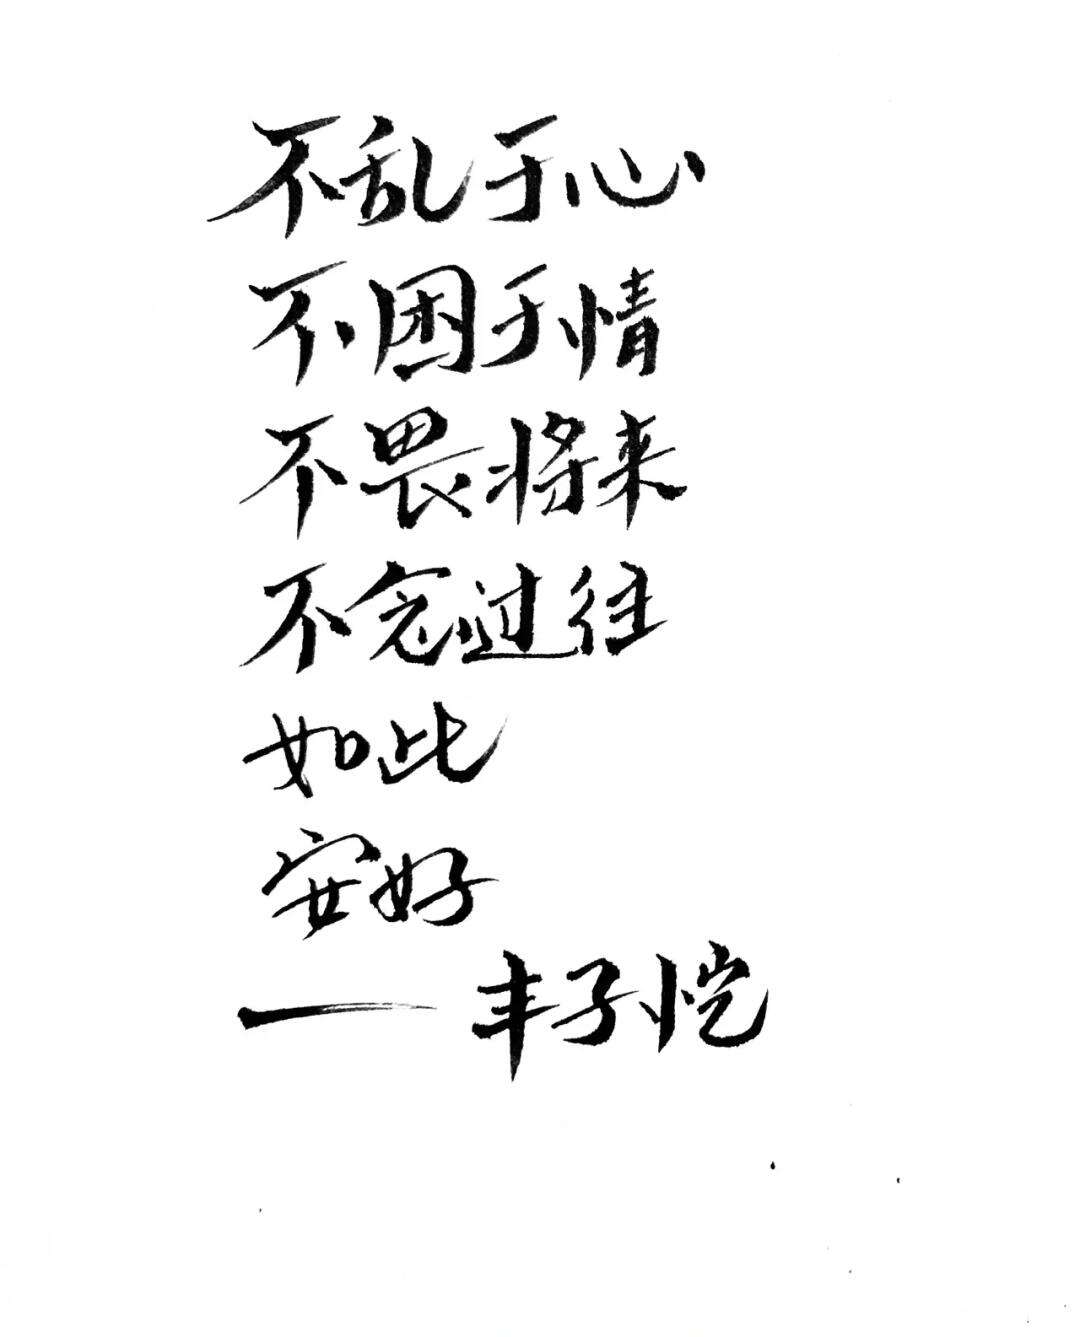 不乱于心
不困于情
不畏将来
不念过往
如此
安好
— 丰子恺